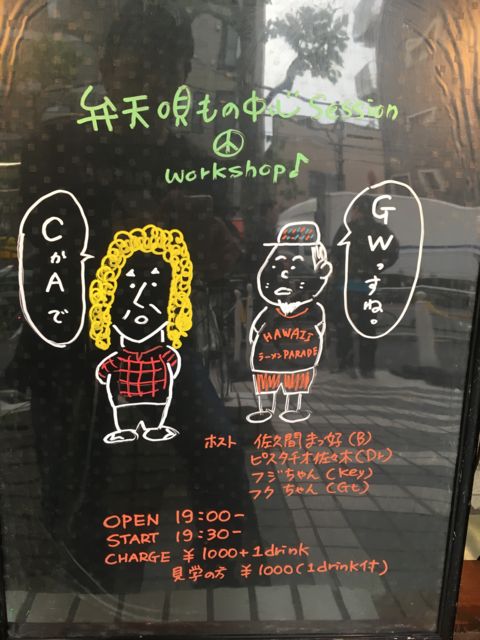 弁天唄もの中心 Session
workshop♪
CかAで
GWっすね。
HAWAII
ラーメン PARADE
ホスト 佐久間まさ好(B)
ピスタチオ佐々木(Dr)
フジちゃん(Key)
フクちゃん(Gt)
OPEN 19:00-
START 19:30-
CHARGE ¥1000+1drink
見学の方 ¥1000(1drink付)